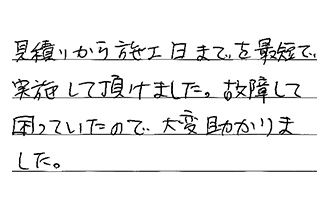 見積りから施工日までを最短で
実施して頂けました。故障して
困っていたので大変助かりま
した。